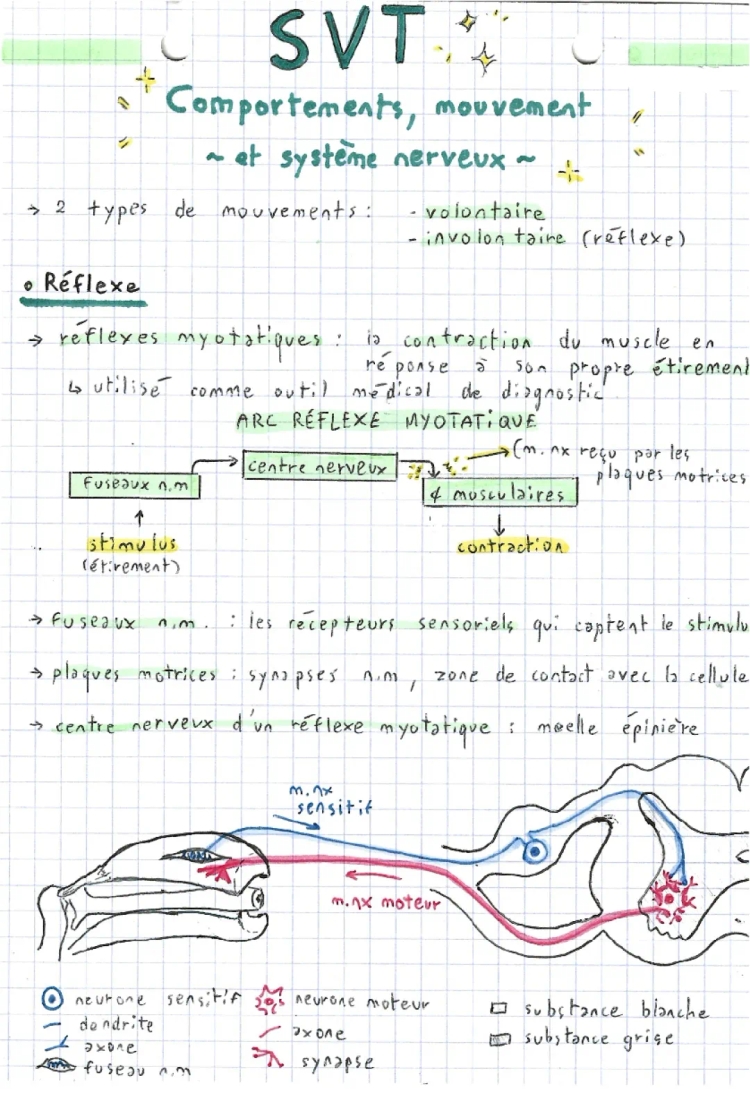 SVT
Comportements, mouvement
~ et système nerveux ~
→ 2 types de mouvements : - volontaire
- involontaire (réflexe)
• Réflexe
→ réflexes myotatiques : la contraction du muscle en
réponse à son propre étirement
↳ utilisé comme outil médical de diagnostic
ARC RÉFLEXE MYOTATIQUE
→ (m. nx reçu par les
plaques motrices
centre nerveux
fuseaux n.m
¢ musculaires
stimulus
(étirement)
contraction
→ fuseaux n.m. : les récepteurs sensoriels qui captent le stimulu
→ plaques motrices : synapses n.m, zone de contact avec la cellule
→ centre nerveux d'un réflexe myotatique : moelle épinière
m. nx
sensitif
m. nx moteur
neurone sensitif
dendrite
axone
fuseau n.m
neurone moteur
axone
synapse
substance blanche
substance grise